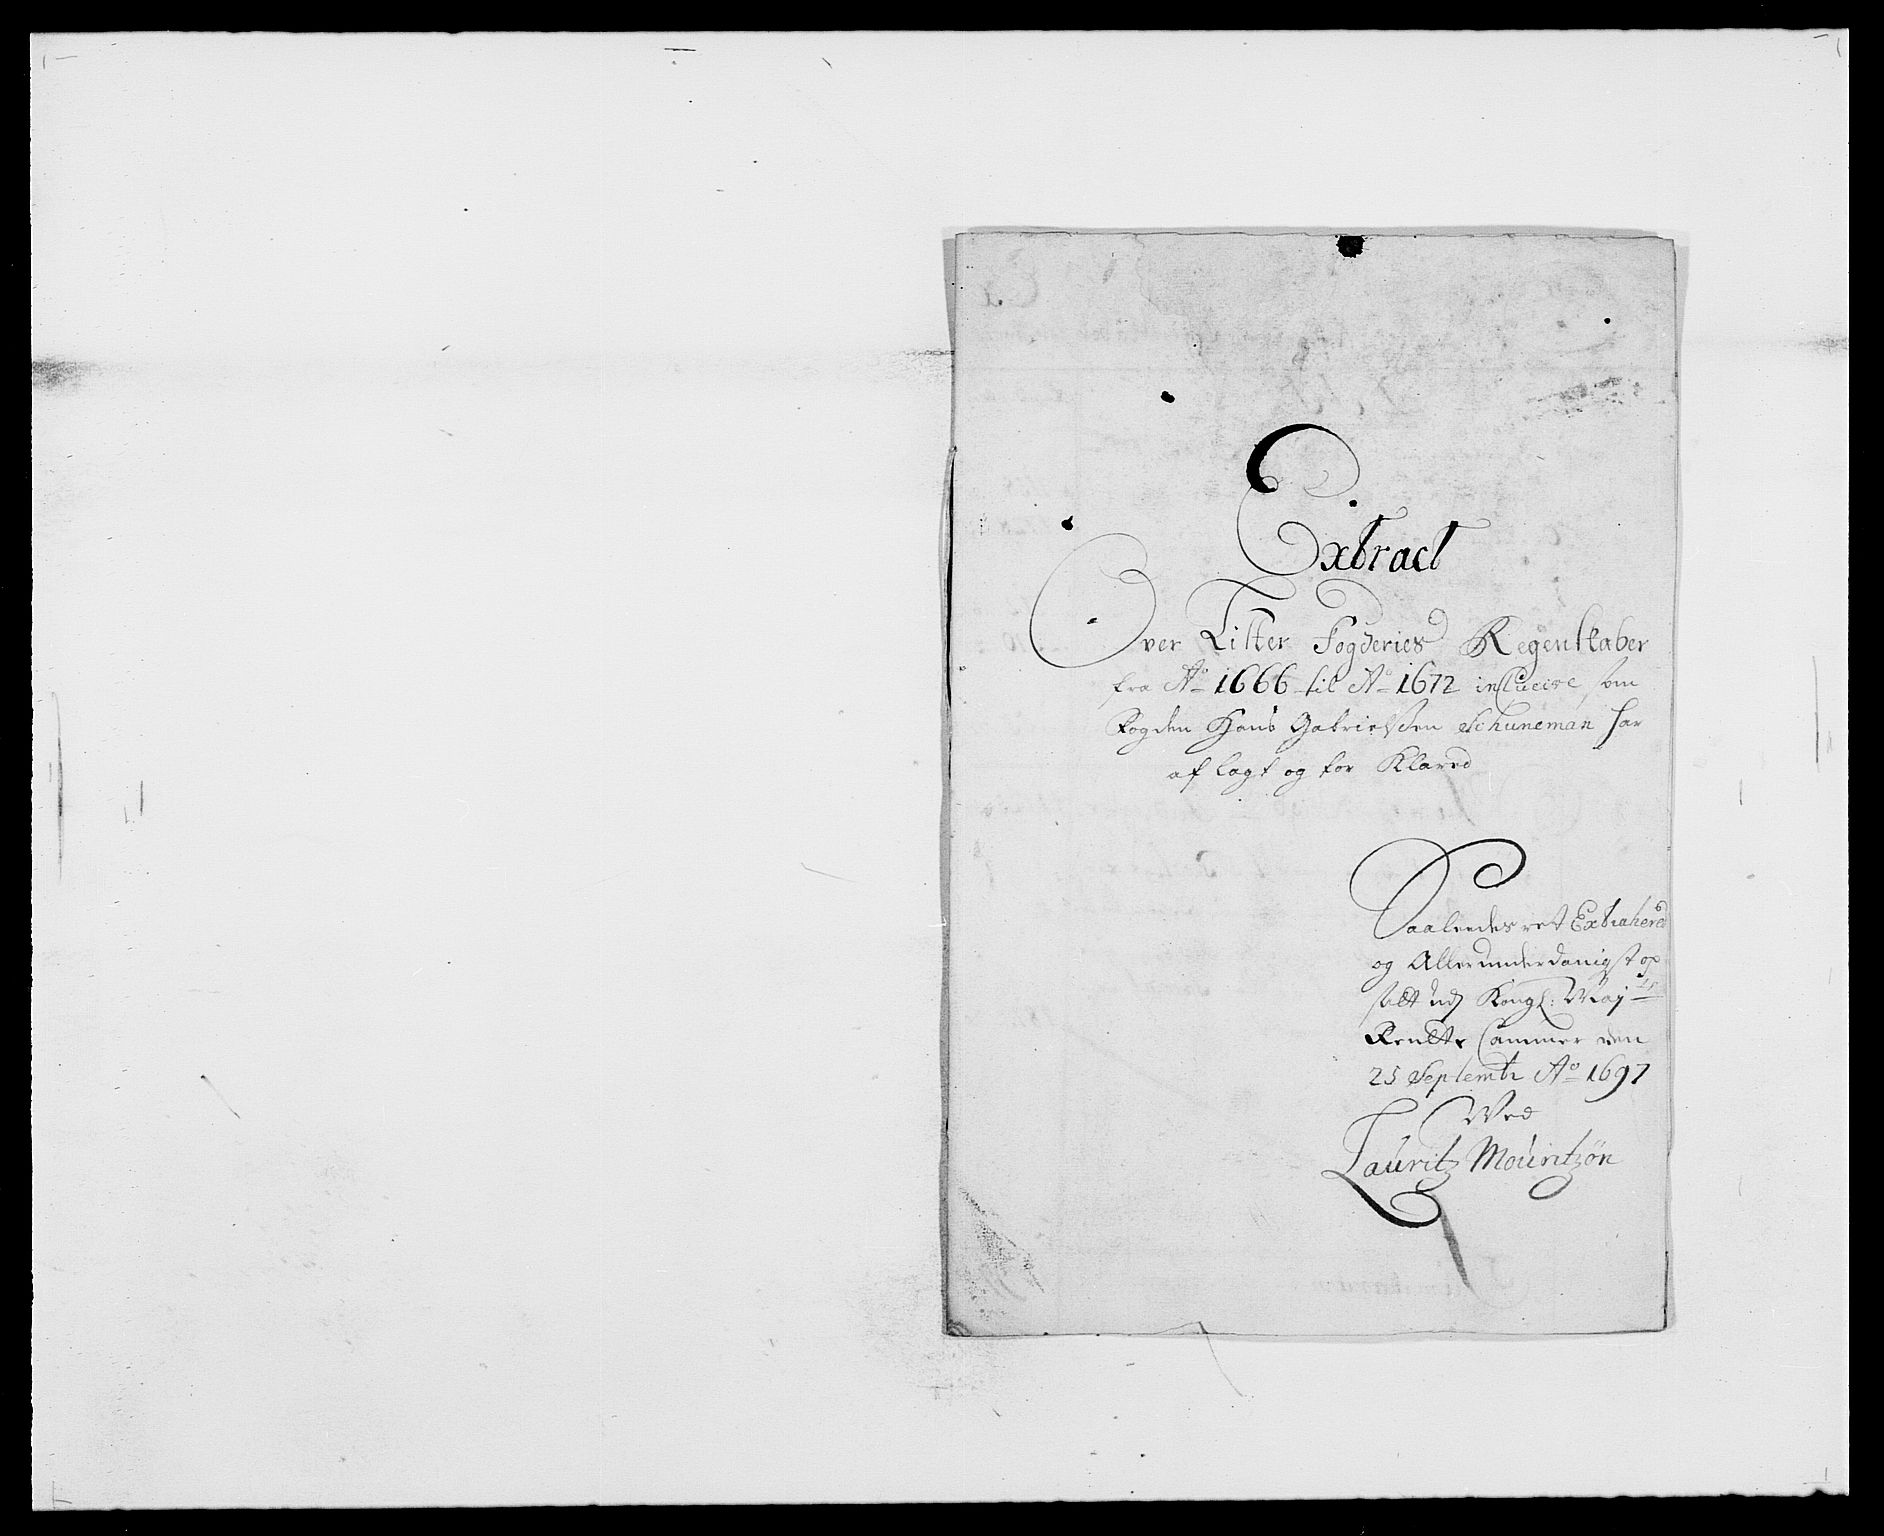 Extract
Over Lister Fogderies Regenskaber
fra Ao 1666 til Ao 1672 inclucive som
Fogden Hans Gabrielsen Schuneman har
aflagt og for Klared
Saaleedes ret Extrahered
og Allerunderdanigst op
satt udj Kongl: Maj ts
Rentte Cammer den
25 Septembr Ao 1697
Ved
Lauritz Mouritzøn